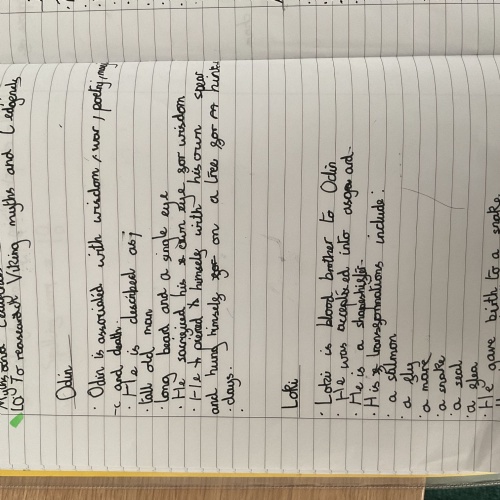 Myths and
LO: To reasearch Viking myths and Ledgends
Odin
· Odin is associated with wisdom / war / poetry /
and death.
· He is descibed as;
· tall old man
· Long beard and a single eye
· He sacrificed his own eye for wisdom
· He pierced himself with his own spear
and hung himself on a tree for
days.
Loki
· Loki is blood brother to Odin
· He was accepted into asgard
· He is a shapeshifter.
· His transformations include:
· a salmon
· a fly
· a mare
· a snake
· a seal
· a flea
· He gave birth to a snake